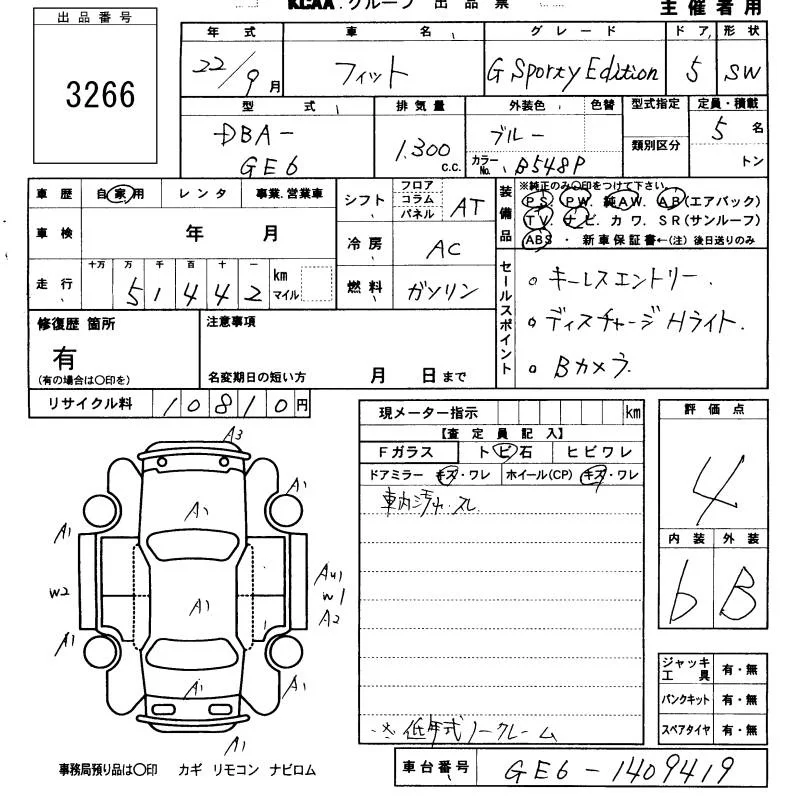 KCAA.グループ 出品票 主催者用
出品番号
3266
年式 車名 グレード ドア 形状
22/9月 フィット G Sporty Edition 5 SW
型式 排気量 外装色 色替 型式指定 定員・積載
DBA-GE6 1.300 c.c. ブルー カラーNo. B548P 類別区分 5名 トン
車歴 自家用 レンタ 事業.営業車
車検 年 月
走行 十万 万 千 百 十 一 km マイル
51442
シフト フロア コラム パネル AT
冷房 AC
燃料 ガソリン
装備品 ※純正のみ○印をつけて下さい。
PS PW 純AW. AB(エアバック)
TV ナビ. カワ. SR(サンルーフ)
ABS ・ 新車保証書←(注)後日送りのみ
セールスポイント
○ キーレスエントリー.
○ ディスチャージHライト.
○ Bカメラ.
修復歴 箇所
有
(有の場合は○印を)
注意事項
名変期日の短い方 月 日まで
リサイクル料 10810円
現メーター指示 km
【査定員記入】
Fガラス トビ石 ヒビワレ
ドアミラー キズ・ワレ ホイール(CP) キズ・ワレ
車内汚れ・スレ
※低年式ノークレーム
評価点
4
内装 外装
b B
ジャッキ工具 有・無
パンクキット 有・無
スペアタイヤ 有・無
A3
A1
A1
A1
W2
A1
A1
A1
A1
AU1
W1
A2
A1
A1
事務局預り品は○印 カギ リモコン ナビロム
車台番号 GE6-1409419